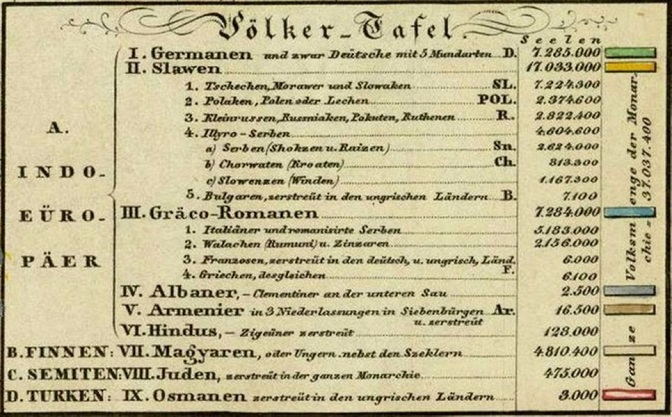 Völker-Tafel.
Seelen
A. INDO-EÜRO-PÄER
I. Germanen und zwar Deütsche mit 5 Mundarten D. 7.285.000
II. Slawen 17.033.000
1. Tschechen, Morawer und Slowaken SL. 7.224.300
2. Polaken, Polen oder Lechen POL. 2.374.600
3. Kleinrussen, Russniaken, Pokuten, Ruthenen R. 2.822.400
4. Illyro-Serben 4.604.600
a) Serben (Shokzen u. Raizen) Sn. 2.624.000
b) Chorwaten (Kroaten) Ch. 813.300
c) Slowenzen (Winden) 1.167.300
5. Bulgaren, zerstreüt in den ungrischen Ländern B. 7.100
III. Gräco-Romanen 7.284.000
1. Italiäner und romanisirte Serben 5.183.000
2. Walachen (Rumuni) u. Zinzaren 2.156.000
3. Franzosen, zerstreüt in den deütsch. u. ungrisch. Länd. F. 6.000
4. Griechen, desgleichen 6.100
IV. Albaner, – Clementiner an der unteren Sau 2.500
V. Armenier in 3 Niederlassungen in Siebenbürgen u. zerstreüt Ar. 16.500
VI. Hindus, – Zigeüner zerstreüt 128.000
B. FINNEN: VII. Magyaren, oder Ungern nebst den Szeklern 4.810.400
C. SEMITEN: VIII. Juden, zerstreüt in der ganzen Monarchie 475.000
D. TURKEN: IX. Osmanen zerstreüt in den ungrischen Ländern 3.000
Ganze Volksmenge der Monarchie = 37.037.400